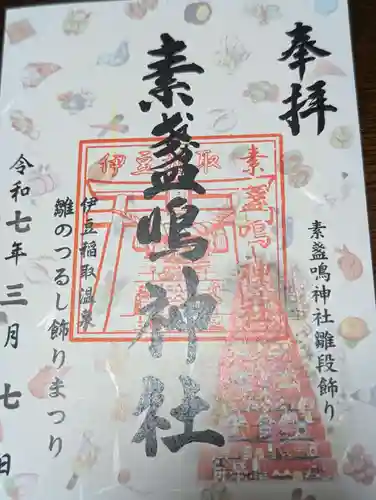 奉拝
素盞鳴神社
素盞鳴神社雛段飾り
伊豆稲取
素盞鳴神社
伊豆稲取温泉
雛のつるし飾りまつり
令和七年三月七日